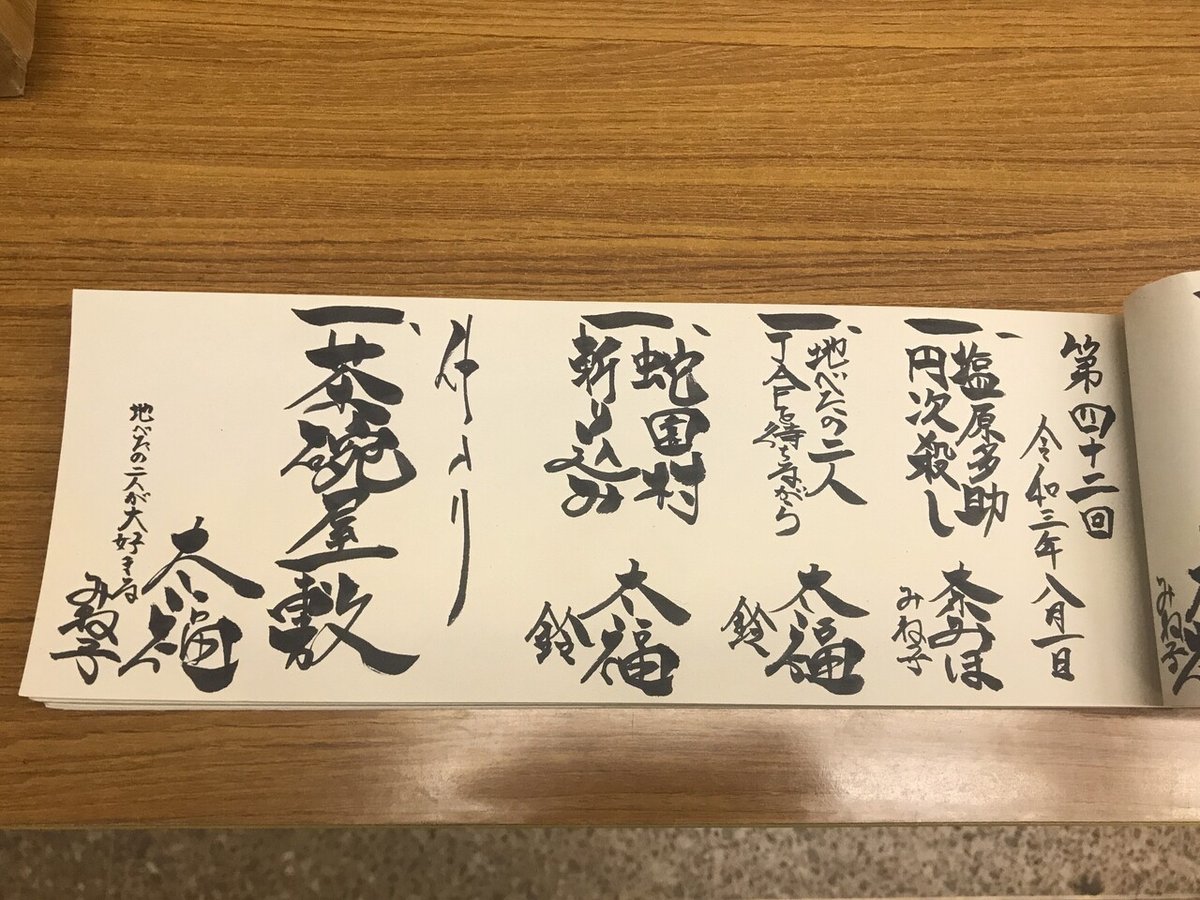 第四十二回
令和三年八月一日
一、塩原多助
円次殺し
奈みほ
みね子
一、地べたの二人
JAFを待ちながら
太福
鈴
一、蛇国村
斬り込み
太福
鈴
仲入り
一、茶碗屋敷
太福
地べたの二人が大好きな
みね子
みね子